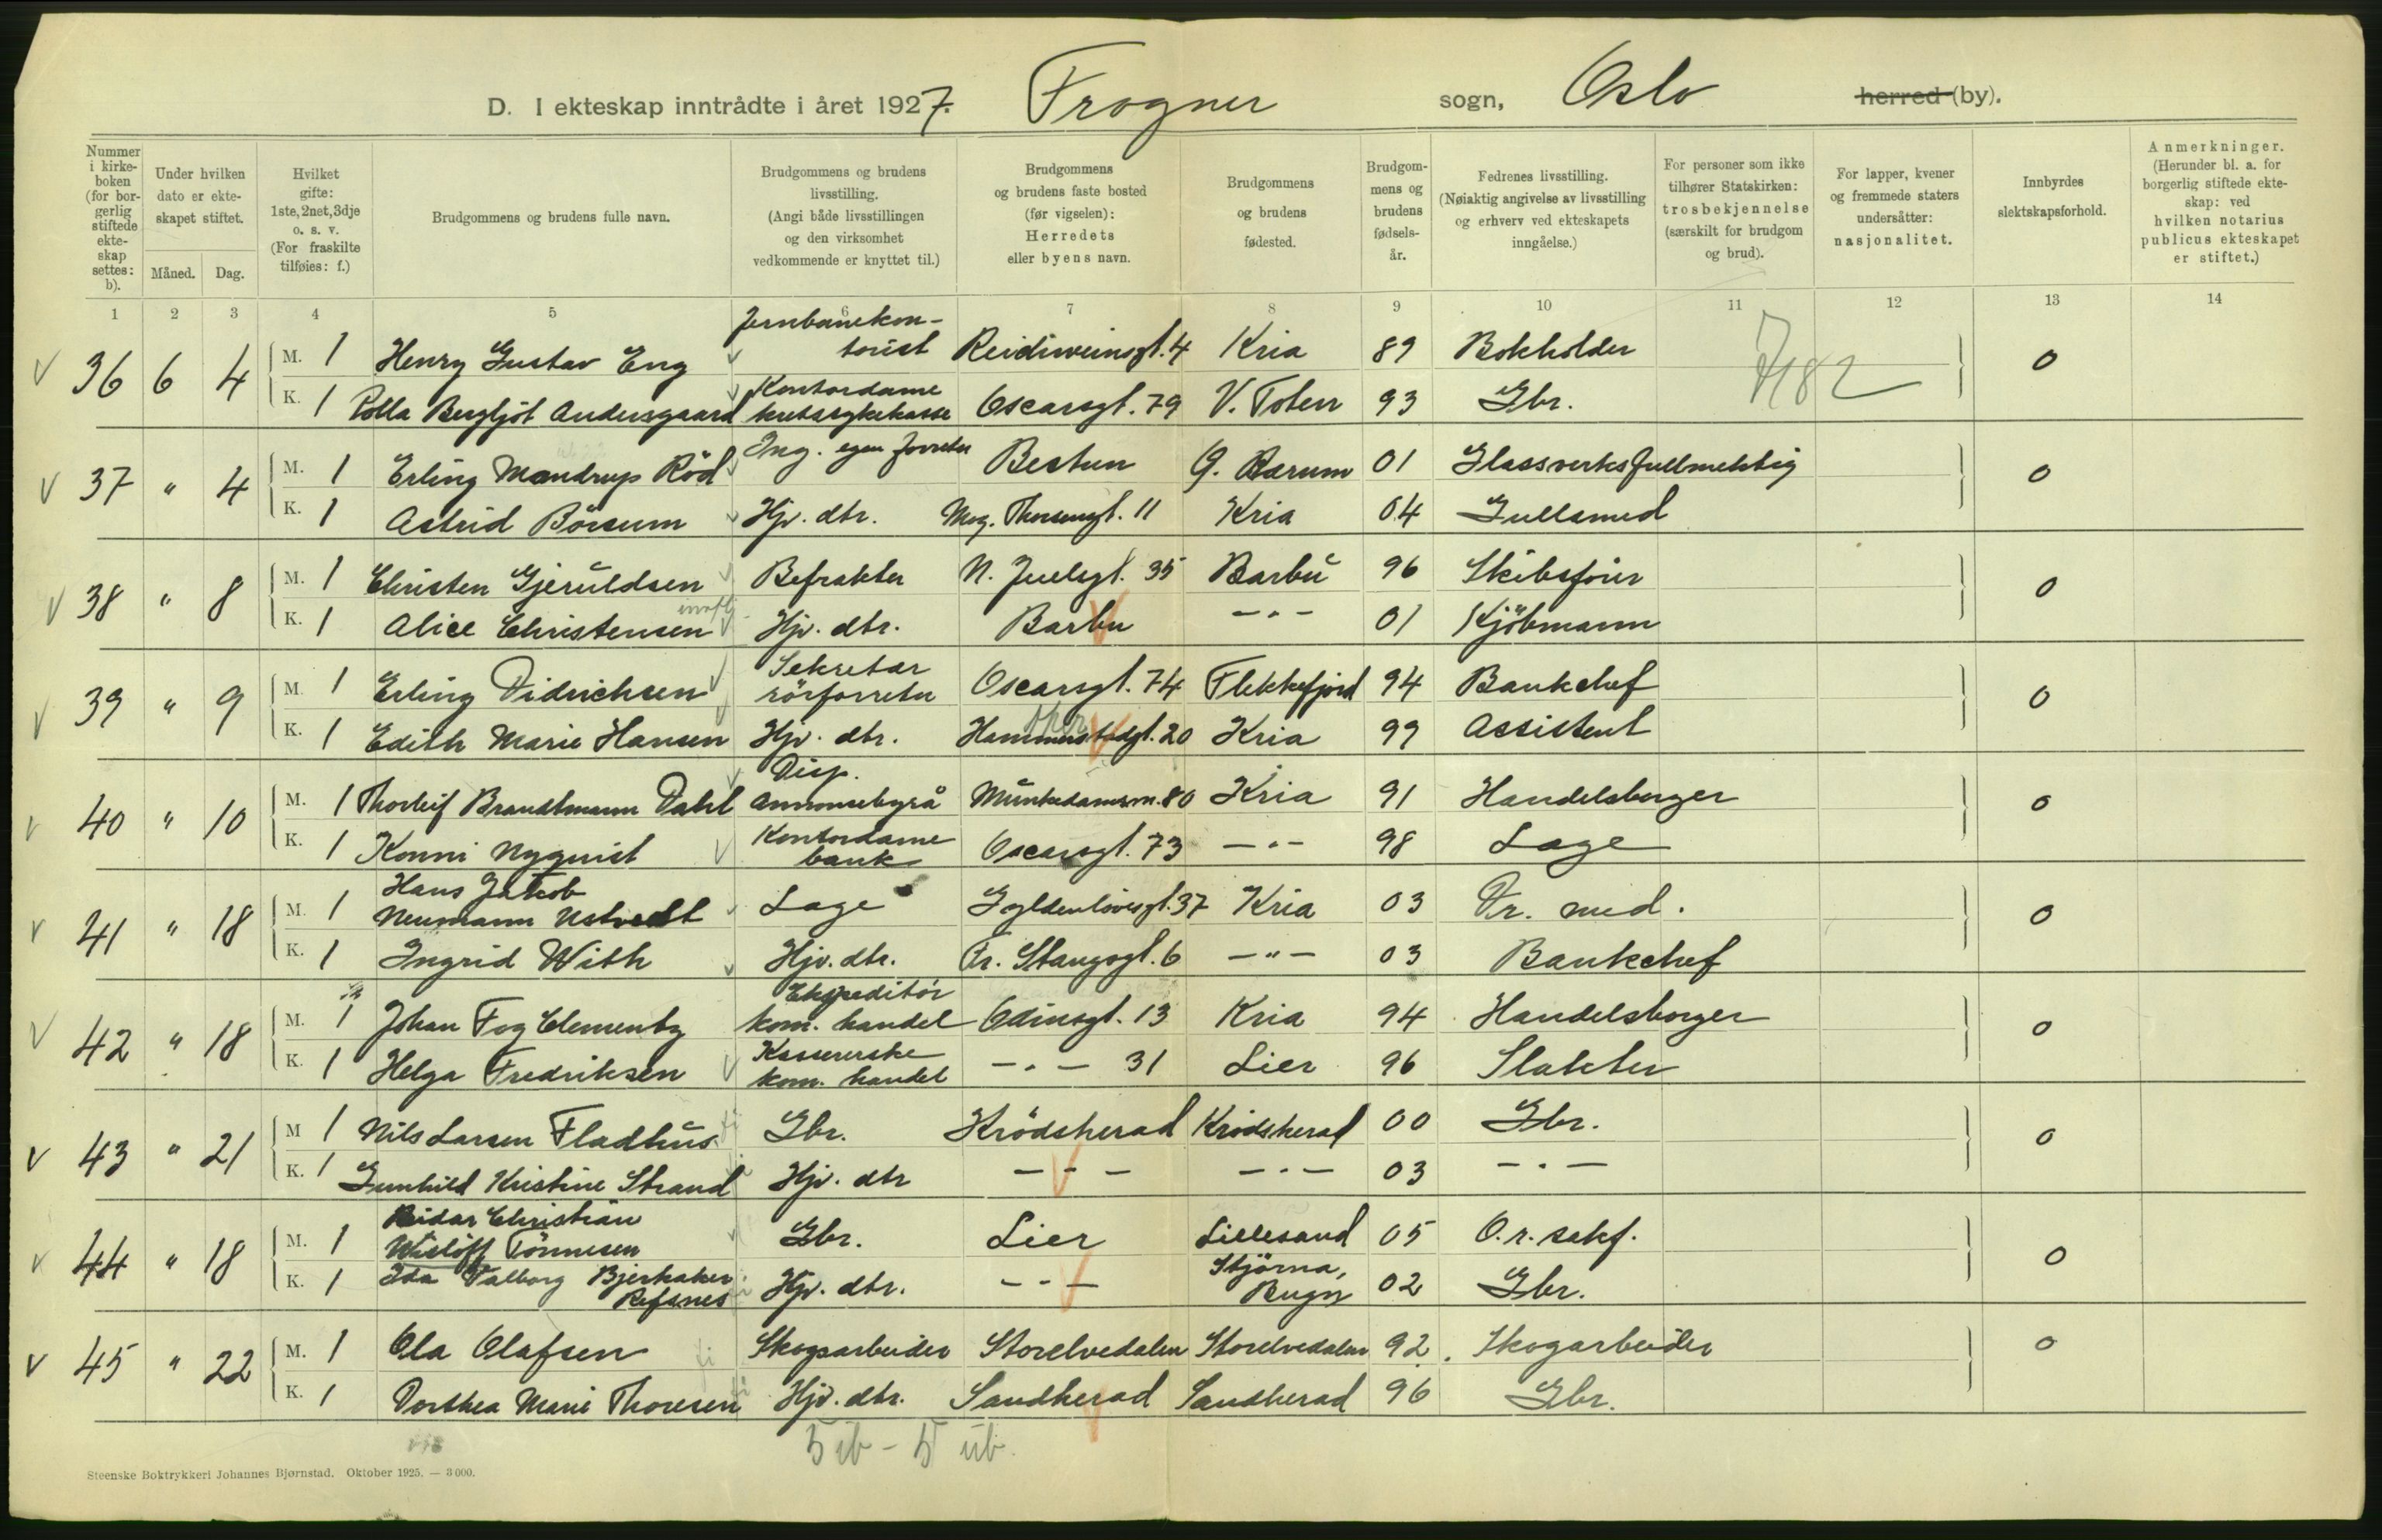 D. I ekteskap inntrådte i året 1927. Frogner sogn, Oslo herred (by).
Nummer i kirkeboken (for borgerlig stiftede ekteskap settes: b).
Under hvilken dato er ekteskapet stiftet.
Måned. Dag.
Hvilket gifte: 1ste, 2net, 3dje o. s. v. (For fraskilte tilføies: f.)
Brudgommens og brudens fulle navn.
Brudgommens og brudens livsstilling. (Angi både livsstillingen og den virksomhet vedkommende er knyttet til.)
Brudgommens og brudens faste bosted (før vigselen): Herredets eller byens navn.
Brudgommens og brudens fødested.
Brudgommens og brudens fødselsår.
Fedrenes livsstilling. (Nøiaktig angivelse av livsstilling og erhverv ved ekteskapets inngåelse.)
For personer som ikke tilhører Statskirken: trosbekjennelse (særskilt for brudgom og brud).
For lapper, kvener og fremmede staters undersåtter: nasjonalitet.
Innbyrdes slektskapsforhold.
Anmerkninger. (Herunder bl. a. for borgerlig stiftede ekteskap: ved hvilken notarius publicus ekteskapet er stiftet.)
1 2 3 4 5 6 7 8 9 10 11 12 13 14
36 6 4 M. 1 Henry Gustav Eng Jernbanekontorist 4 Kria 89 Bokholder 0
K. 1 Bergljót Andersgaard Kontordame kretssykekasse Oscarsgt. 79 V. Toten 93 Gbr.
37 " 4 M. 1 Erling Mandrup Röd Ing. egen forretn Bestun Ø. Bærum 01 Glassverksfullmektig 0
K. 1 Astrid Börsum Hjv. dtr. Mog. Thorsensgt. 11 Kria 04 Gullsmed
38 " 8 M. 1 Christen Gjeruldsen Befrakter N. Juelsgt. 35 Barbu 96 Skibsförer 0
K. 1 Alice Christensen Hjv. dtr. Barbu — " — 01 Kjöbmann
39 " 9 M. 1 Erling Didrichsen Sekretær rörforretn Oscarsgt. 74 Flekkefjord 94 Bankchef 0
K. 1 Edith Marie Hansen Hjv. dtr. Hammerstadgt. 20 Kria 99 Assistent
40 " 10 M. 1 Thorleif Brandtmann Dahl Disp. Annonsebyrå Munkedamsvn. 80 Kria 91 Handelsborger 0
K. 1 Konni Nyquist Kontordame bank Oscarsgt. 73 — " — 98 Læge
41 " 18 M. 1 Hans Jakob Neumann Ustvedt Læge Gyldenlövesgt. 37 Kria 03 Dr. med. 0
K. 1 Ingrid With Hjv. dtr. Fr. Stangsgt. 6 — " — 03 Bankchef
42 " 18 M. 1 Johan Fog Clementz Ekspeditör kom. handel Odinsgt. 13 Kria 94 Handelsborger 0
K. 1 Helga Fredriksen Kassererske kom. handel — " — 31 Lier 96 Slakter
43 " 21 M 1 Nils Larsen Fladhus Gbr. Krödsherad Krödsherad 00 Gbr. 0
K. 1 Gunhild Kristine Strand Hjv. dtr — " — — " — 03 — " —
44 " 18 M. 1 Reidar Christian Wislöff Tönnesen Gbr. Lier Lillesand 05 O. r. sakf. 0
K. 1 Ida Valborg Bjerkaker Refsnes Hjv. dtr. — " — Stjörna, Bugn 02 Gbr.
45 " 22 M. 1 Ola Olafsen Skogsarbeider Storelvedalen Storelvedalen 92 Skogarbeider 0
K. 1 Dorthea Marie Thoresen Hjv. dtr. Sandherad Sandherad 96 Gbr.
5 ib – 5 ub.
Steenske Boktrykkeri Johannes Bjørnstad. Oktober 1925. — 3 000.